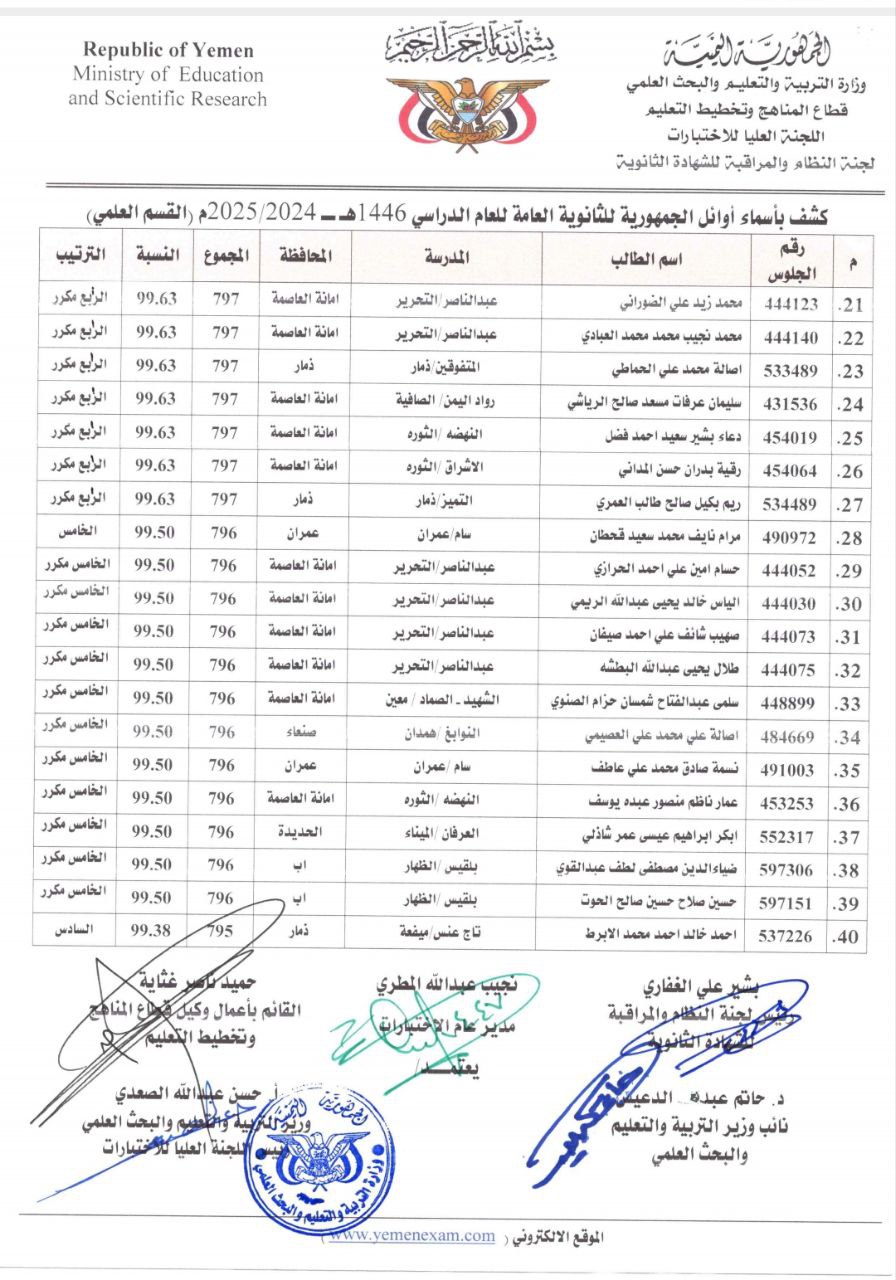 Republic of Yemen
Ministry of Education
and Scientific Research
بسم الله الرحمن الرحيم
الجمهورية اليمنية
وزارة التربية والتعليم والبحث العلمي
قطاع المناهج وتخطيط التعليم
اللجنة العليا للاختبارات
لجنة النظام والمراقبة للشهادة الثانوية
كشف بأسماء أوائل الجمهورية للثانوية العامة للعام الدراسي 1446هـ ــ 2025/2024م (القسم العلمي)
م رقم الجلوس اسم الطالب المدرسة المحافظة المجموع النسبة الترتيب
21. 444123 محمد زيد علي الضوراني عبدالناصر/التحرير امانة العاصمة 797 99.63 الرابع مكرر
22. 444140 محمد نجيب محمد محمد العبادي عبدالناصر/التحرير امانة العاصمة 797 99.63 الرابع مكرر
23. 533489 اصالة محمد علي الحماطي المتفوقين/ذمار ذمار 797 99.63 الرابع مكرر
24. 431536 سليمان عرفات مسعد صالح الرياشي رواد اليمن/ الصافية امانة العاصمة 797 99.63 الرابع مكرر
25. 454019 دعاء بشير سعيد احمد فضل النهضه /الثوره امانة العاصمة 797 99.63 الرابع مكرر
26. 454064 رقية بدران حسن المداني الاشراق /الثوره امانة العاصمة 797 99.63 الرابع مكرر
27. 534489 ريم بكيل صالح طالب العمري التميز/ذمار ذمار 797 99.63 الرابع مكرر
28. 490972 مرام نايف محمد سعيد قحطان سام/عمران عمران 796 99.50 الخامس
29. 444052 حسام امين علي احمد الحرازي عبدالناصر/التحرير امانة العاصمة 796 99.50 الخامس مكرر
30. 444030 الياس خالد يحيى عبدالله الريمي عبدالناصر/التحرير امانة العاصمة 796 99.50 الخامس مكرر
31. 444073 صهيب شائف علي احمد صيفان عبدالناصر/التحرير امانة العاصمة 796 99.50 الخامس مكرر
32. 444075 طلال يحيى عبدالله البطشه عبدالناصر/التحرير امانة العاصمة 796 99.50 الخامس مكرر
33. 448899 سلمى عبدالفتاح شمسان حزام الصنوي الشهيد ـ الصماد / معين امانة العاصمة 796 99.50 الخامس مكرر
34. 484669 اصالة علي محمد علي العصيمي النوابغ/همدان صنعاء 796 99.50 الخامس مكرر
35. 491003 نسمة صادق محمد علي عاطف سام /عمران عمران 796 99.50 الخامس مكرر
36. 453253 عمار ناظم منصور عبده يوسف النهضه /الثوره امانة العاصمة 796 99.50 الخامس مكرر
37. 552317 ابكر ابراهيم عيسى عمر شاذلي العرفان /الميناء الحديدة 796 99.50 الخامس مكرر
38. 597306 ضياءالدين مصطفى لطف عبدالقوي بلقيس/الظهار اب 796 99.50 الخامس مكرر
39. 597151 حسين صلاح حسين صالح الحوت بلقيس/الظهار اب 796 99.50 الخامس مكرر
40. 537226 احمد خالد احمد محمد الابرط تاج عنس/ميفعة ذمار 795 99.38 السادس
بشير علي الغفاري
رئيس لجنة النظام والمراقبة
للشهادة الثانوية
نجيب عبدالله المطري
مدير عام الاختبارات
يعتمد/
حميد ناصر غثاية
القائم بأعمال وكيل قطاع المناهج
وتخطيط التعليم
د. حاتم عبده الدعيس
نائب وزير التربية والتعليم
والبحث العلمي
أ. حسن عبدالله الصعدي
وزير التربية والتعليم والبحث العلمي
رئيس اللجنة العليا للاختبارات
الجمهورية اليمنية
وزارة التربية والتعليم والبحث العلمي
الموقع الالكتروني ( www.yemenexam.com )